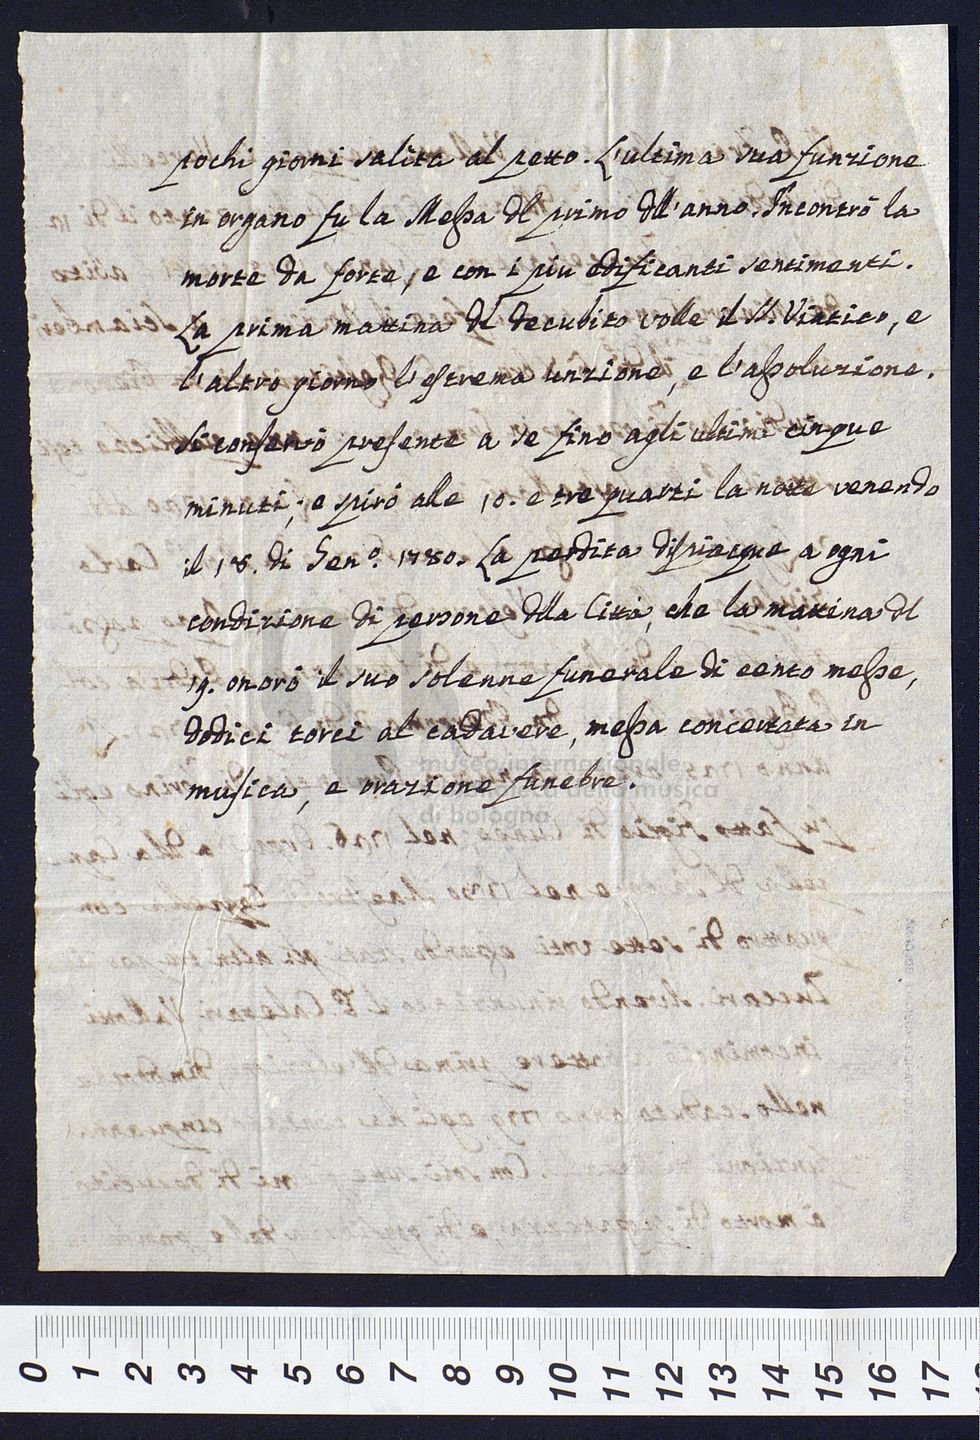 pochi giorni salita al petto. L'ultima sua funzione
in organo fu la Messa dl primo dll'anno. Incontrò la
morte da forte, e con i piu edificanti sentimenti.
La prima mattina dl decubito volle il S. Viatico, e
l'altro giorno l'estrema unzione, e l'assoluzione.
Si conservò presente a se fino agli ultimi cinque
minuti; e spirò alle 10. e tre quarti la notte venendo
il 18. di Gen.º 1780. La perdita dispiacque a ogni
condizione di persone dlla Città, che la mattina dl
19. onorò il suo solenne funerale di cento messe,
dodici torci al cadavere, messa concertata in
musica, e orazione funebre.
museo internazionale
e biblioteca della musica
di bologna
0 1 2 3 4 5 6 7 8 9 10 11 12 13 14 15 16 17 18